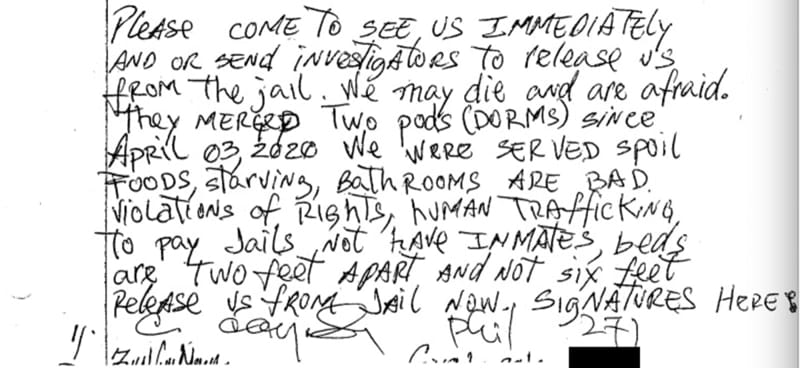 Please COME TO SEE US IMMEDIATELY
AND OR SEND investigATORS to release us
fROM the jail. We may die and are afraid.
they MERGED Two pods (DORMS) since
April 03, 2020 We WERE SERVED spoil
FOODS, starving, BathROOMS ARE BAD.
Violations of Rights, hUMAN TRAffiCKiNG,
to pay Jails Not hAVe INMATES, beds
are Two feet APART AND Not six feet
Release us fROM JAIL Now. SIGNATURES HERE:
Phil 271